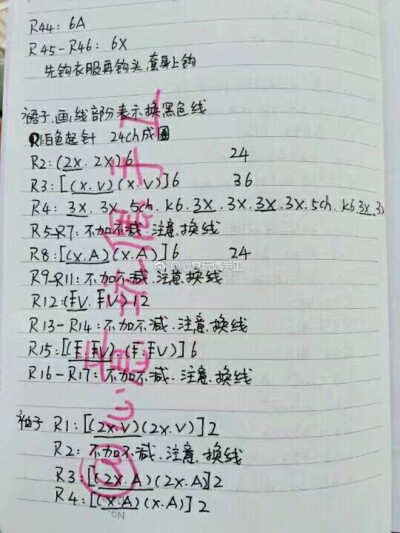 R44: 6A
R45-R46: 6X
先钩衣服再钩头,套身上钩
裙子,画线部分表示换黑色线
R1白色起针 24ch成圈
R2: (2x. 2x)6 24
R3: [(x.v)(x.v)]6 36
R4: 3x. 3x. 5ch. k6. 3x. 3x. 3x. 3x. 5ch. k6. 3x. 3x
R5-R7: 不加不减.注意.换线
R8: [(x.A)(x.A)]6 24
R9-R11: 不加不减.注意换线
R12: (FV. FV)12
R13-R14: 不加不减.注意.换线
R15: [(F. FV)(F. FV)]6
R16-R17: 不加不减.注意.换线
袖子 R1: [(2x.v)(2x.v)]2
R2: 不加不减.注意.换线
R3: [(2x.A)(2x.A)]2
R4: [(x.A)(x.A)]2